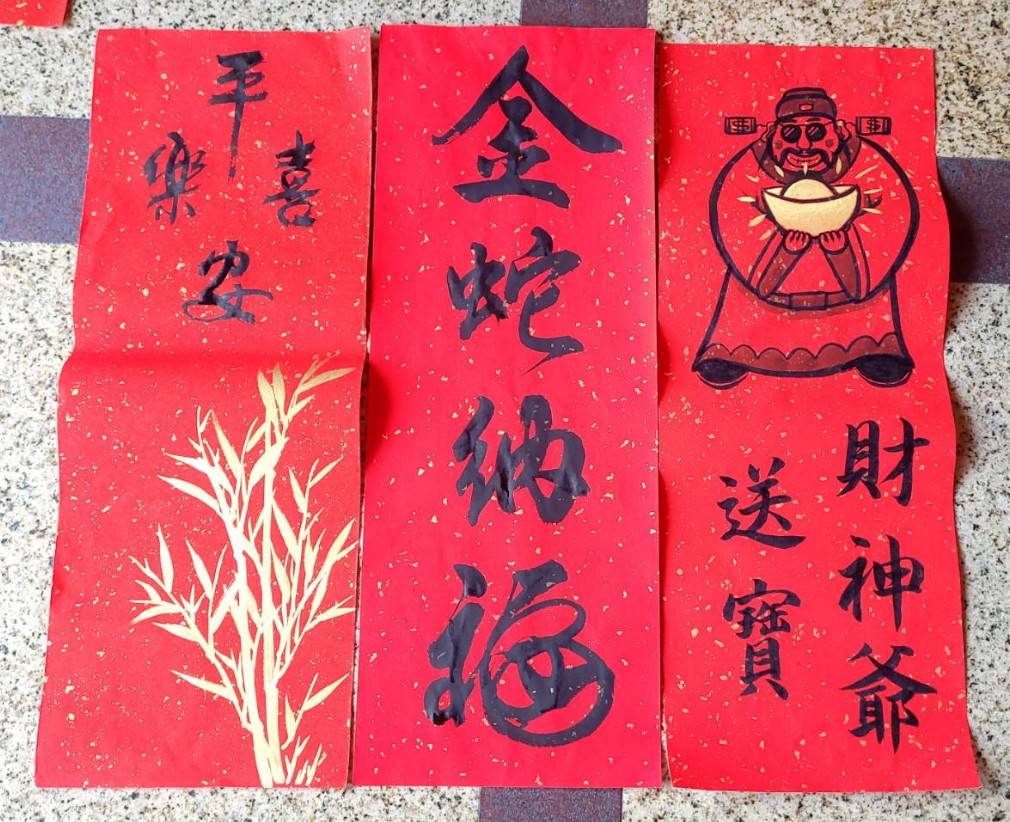 平安
喜樂
金蛇納福
財神爺
送寶